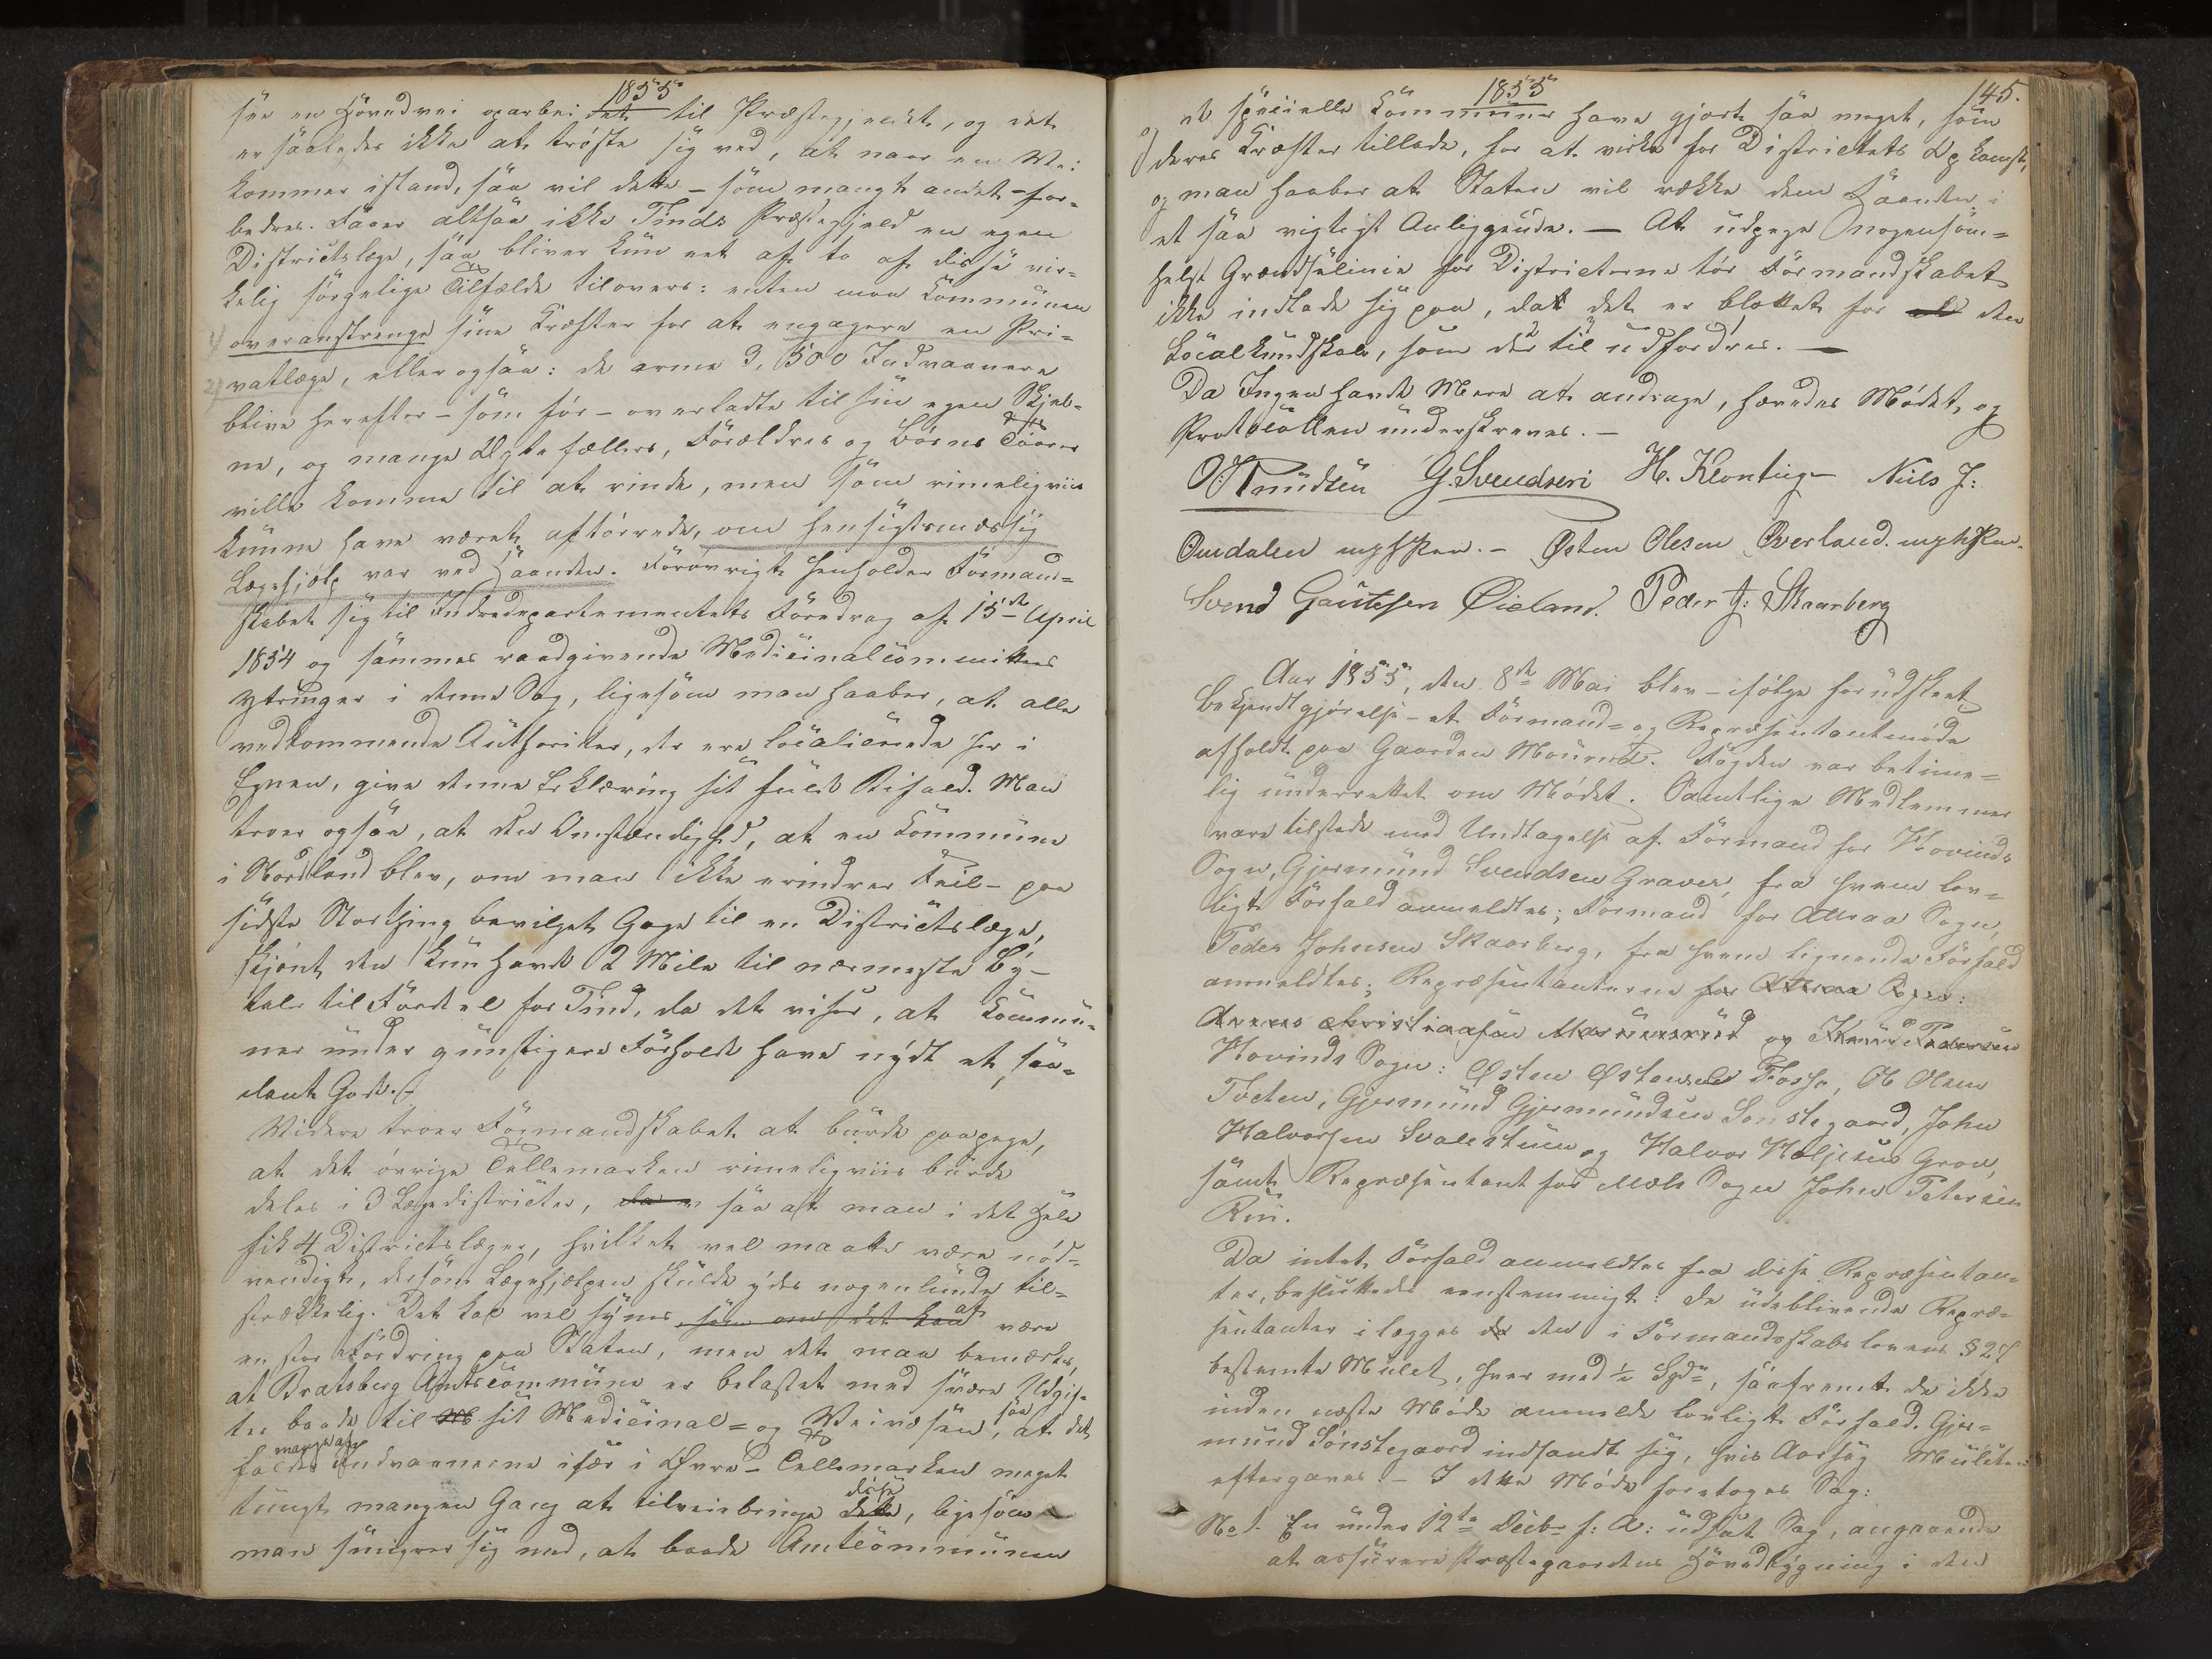 1855
see en Hovedvei oparbeidet til Præstegjeldet, og det
er saaledes ikke at trøste sig ved, at naar en Vei
kommer istand, saa vil dette – som meget andet – for-
bedres. Faaer altsaa ikke Tinds Præstegjeld en egen
Districtslæge, saa bliver kun eet af to af disse vir-
kelig sørgelige Tilfælde tilovers: enten maa Kommunen
1) overanstrenge sine Kræfter for at engagere en Pri-
2) vatlæge, eller ogsaa: de arme 3,500 Indvaanere
blive herefter – som før – overladte til sin egen Skjæb-
ne, og mange Ægtefællers, Forældres og Børns Taarer
ville komme til at rinde, men som rimeligviis
kunne have været aftørrede, om hensigtsmæssig
Lægehjælp var ved Haanden. Forøvrigt henholder Formand-
skabet sig til Indredepartementets Foredrag af 15de April
1854 og sammes raadgivende Medicinalcommittees
Ytringer i denne Sag, ligesom man haaber, at alle
vedkommende Authoriter, der ere localiserede her i
Egnen, give denne Erklæring sit fulde Bifald. Man
troer ogsaa, at den Omstændighed, at en Kommune
i Nordland blev, om man ikke erindrer Feil – paa
sidste Storthing bevilget Gage til en Districtslæge,
skjønt den kun havde 2 Mile til nærmeste By –
taler til Fordeel for Tind, da det viser, at Kommu-
ner under gunstigere Forholde have nydt et saa-
dant Gode. –
Videre troer Formandskabet at burde paapege,
at det øvrige Tellemarken rimeligviis burde
deles i 3 Lægedistricter, saa at man i det Hele
fik 4 Districtslæger, hvilket vel maatte være nød-
vendigt, dersom Lægehjælpen skulde ydes nogenlunde til-
strækkelig. Det kal vel synes som om det kan at være
en stor Fordring paa Staten, men det maa bemærkes,
at Bratsberg Amtscommune er belastet med svære Udgif-
ter baade til sit Medicinal- og Veivæsen, saa at det
falder mange af Indvaanerne især i Øvre-Tellemarken meget
tungt mangen Gang at tilveiebringe disse, ligesom
man smigrer sig med, at baade Amtcommunen
1855
145.
og de specielle Kommuner have gjort saa meget, som
deres Kræfter tillade, for at virke for Districtets Opkomst,
og man haaber at Staten vil række dem Haanden i
et saa vigtigt Anliggende. – At udpege nogensom-
helst Grændselinie for Districterne tør Formandskabet
ikke indlade sig paa, da det er blottet for den
Localkundskab, som der til udfordres. –
Da Ingen havde Mere at andrage, hævedes Mødet, og
Protocollen underskreves. –
Knudsen G. Svendsen H. Klonteig Niels J:
Omdalen Østen Olesen Øverland.
Svend Gautesen Øieland. Peder J: Skaarberg
Aar 1855, den 8de Mai blev – ifølge forudskeet
Bekjendtgjørelse – et Formand- og Repræsentantmøde
afholdt paa Gaarden Mourud. Fogden var betime-
lig underrettet om Mødet. Samtlige Medlemmer
vare tilstede med Undtagelse af Formand for Hovinds
Sogn, Gjermund Svendsen Graver, fra hvem lov-
ligt Forfald anmeldtes; Formand for Attraa Sogn,
Peder Johnsen Skaarberg, fra hvem lignende Forfald
anmeldtes; Repræsentanterne for Attraa Sogn:
og Knud Pedersen
Hovinds Sogn: Østen Østensen Fosse, Ole Olsen
Toeten, Gjermund Gjermundsen Sønstegaard, John
Halvorsen Svalestuen og Halvor Heljesen Grov,
samt Repræsentant for Mæls Sogn John Petersen
Rui.
Da intet Forfald anmeldtes fra disse Repræsentan-
ter, besluttedes eenstemmigt: de udeblivende Repræ-
sentanter ilægges den i Formandsskabslovens § 27
bestemte Mulct, hver med ½ Spd, saafremt de ikke
inden næste Møde anmelde lovligt Forfald. Gjer-
mund Sønstegaard indfandt sig, hvis Aarsag Mulcten
eftergaves. – I dette Møde foretoges Sag:
No 1. En under 12te Decbr f: A: udsat Sag, angaaende
at assurere Præstegaardens Hovedbygning i den